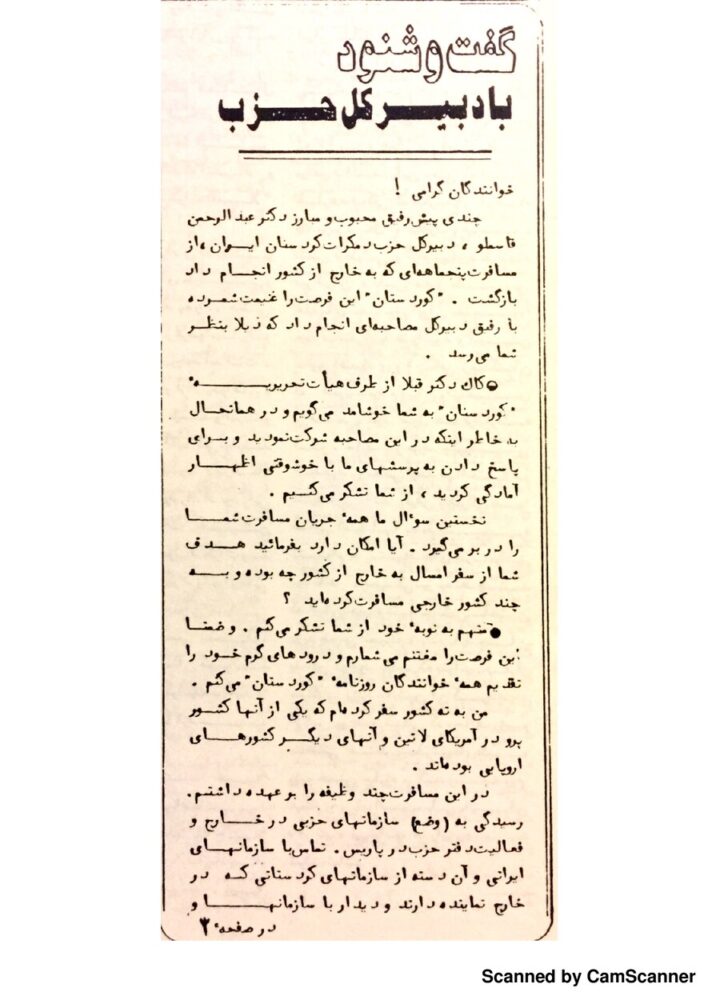 گفت و شنود
با دبیر کل حزب
خوانندگان گرامی !
چندی پیش رفیق محبوب و مبارز دکتر عبدالرحمن
قاسملو ، دبیرکل حزب دمکرات کردستان ایران ، از
مسافرت پنجماهه‌ای که به خارج از کشور انجام داد
بازگشت . "کوردستان" این فرصت را غنیمت شمرده
با رفیق دبیرکل مصاحبه‌ای انجام داد که ذیلا بنظر
شما می‌رسد .
کاک دکتر قبلا از طرف هیأت تحریریه
"کوردستان" به شما خوشامد می‌گویم و در همانحال
به خاطر اینکه در این مصاحبه شرکت نمودید و برای
پاسخ دادن به پرسشهای ما با خوشوقتی اظهار
آمادگی کردید ، از شما تشکر می‌کنیم .
نخستین سوءال ما همه جریان مسافرت شما
را در بر می‌گیرد . آیا امکان دارد بفرمائید هدف
شما از سفر امسال به خارج از کشور چه بوده و به
چند کشور خارجی مسافرت کرده‌اید ؟
● منهم به نوبهء خود از شما تشکر می‌کنم . و ضمنا
این فرصت را مغتنم می‌شمارم و درودهای گرم خود را
تقدیم همهء خوانندگان روزنامهء "کوردستان" می‌کنم .
من به نه کشور سفر کرده‌ام که یکی از آنها کشور
پرو در آمریکای لاتین و آنهای دیگر کشورهای
اروپایی بوده‌اند .
در این مسافرت چند وظیفه را بر عهده داشتم.
رسیدگی به (وضع) سازمانهای حزبی در خارج و
فعالیت دفتر حزب در پاریس . تماس با سازمانهای
ایرانی و آن دسته از سازمانهای کردستانی که در
خارج نماینده دارند و دیدار با سازمانها و
در صفحهء ۳
Scanned by CamScanner